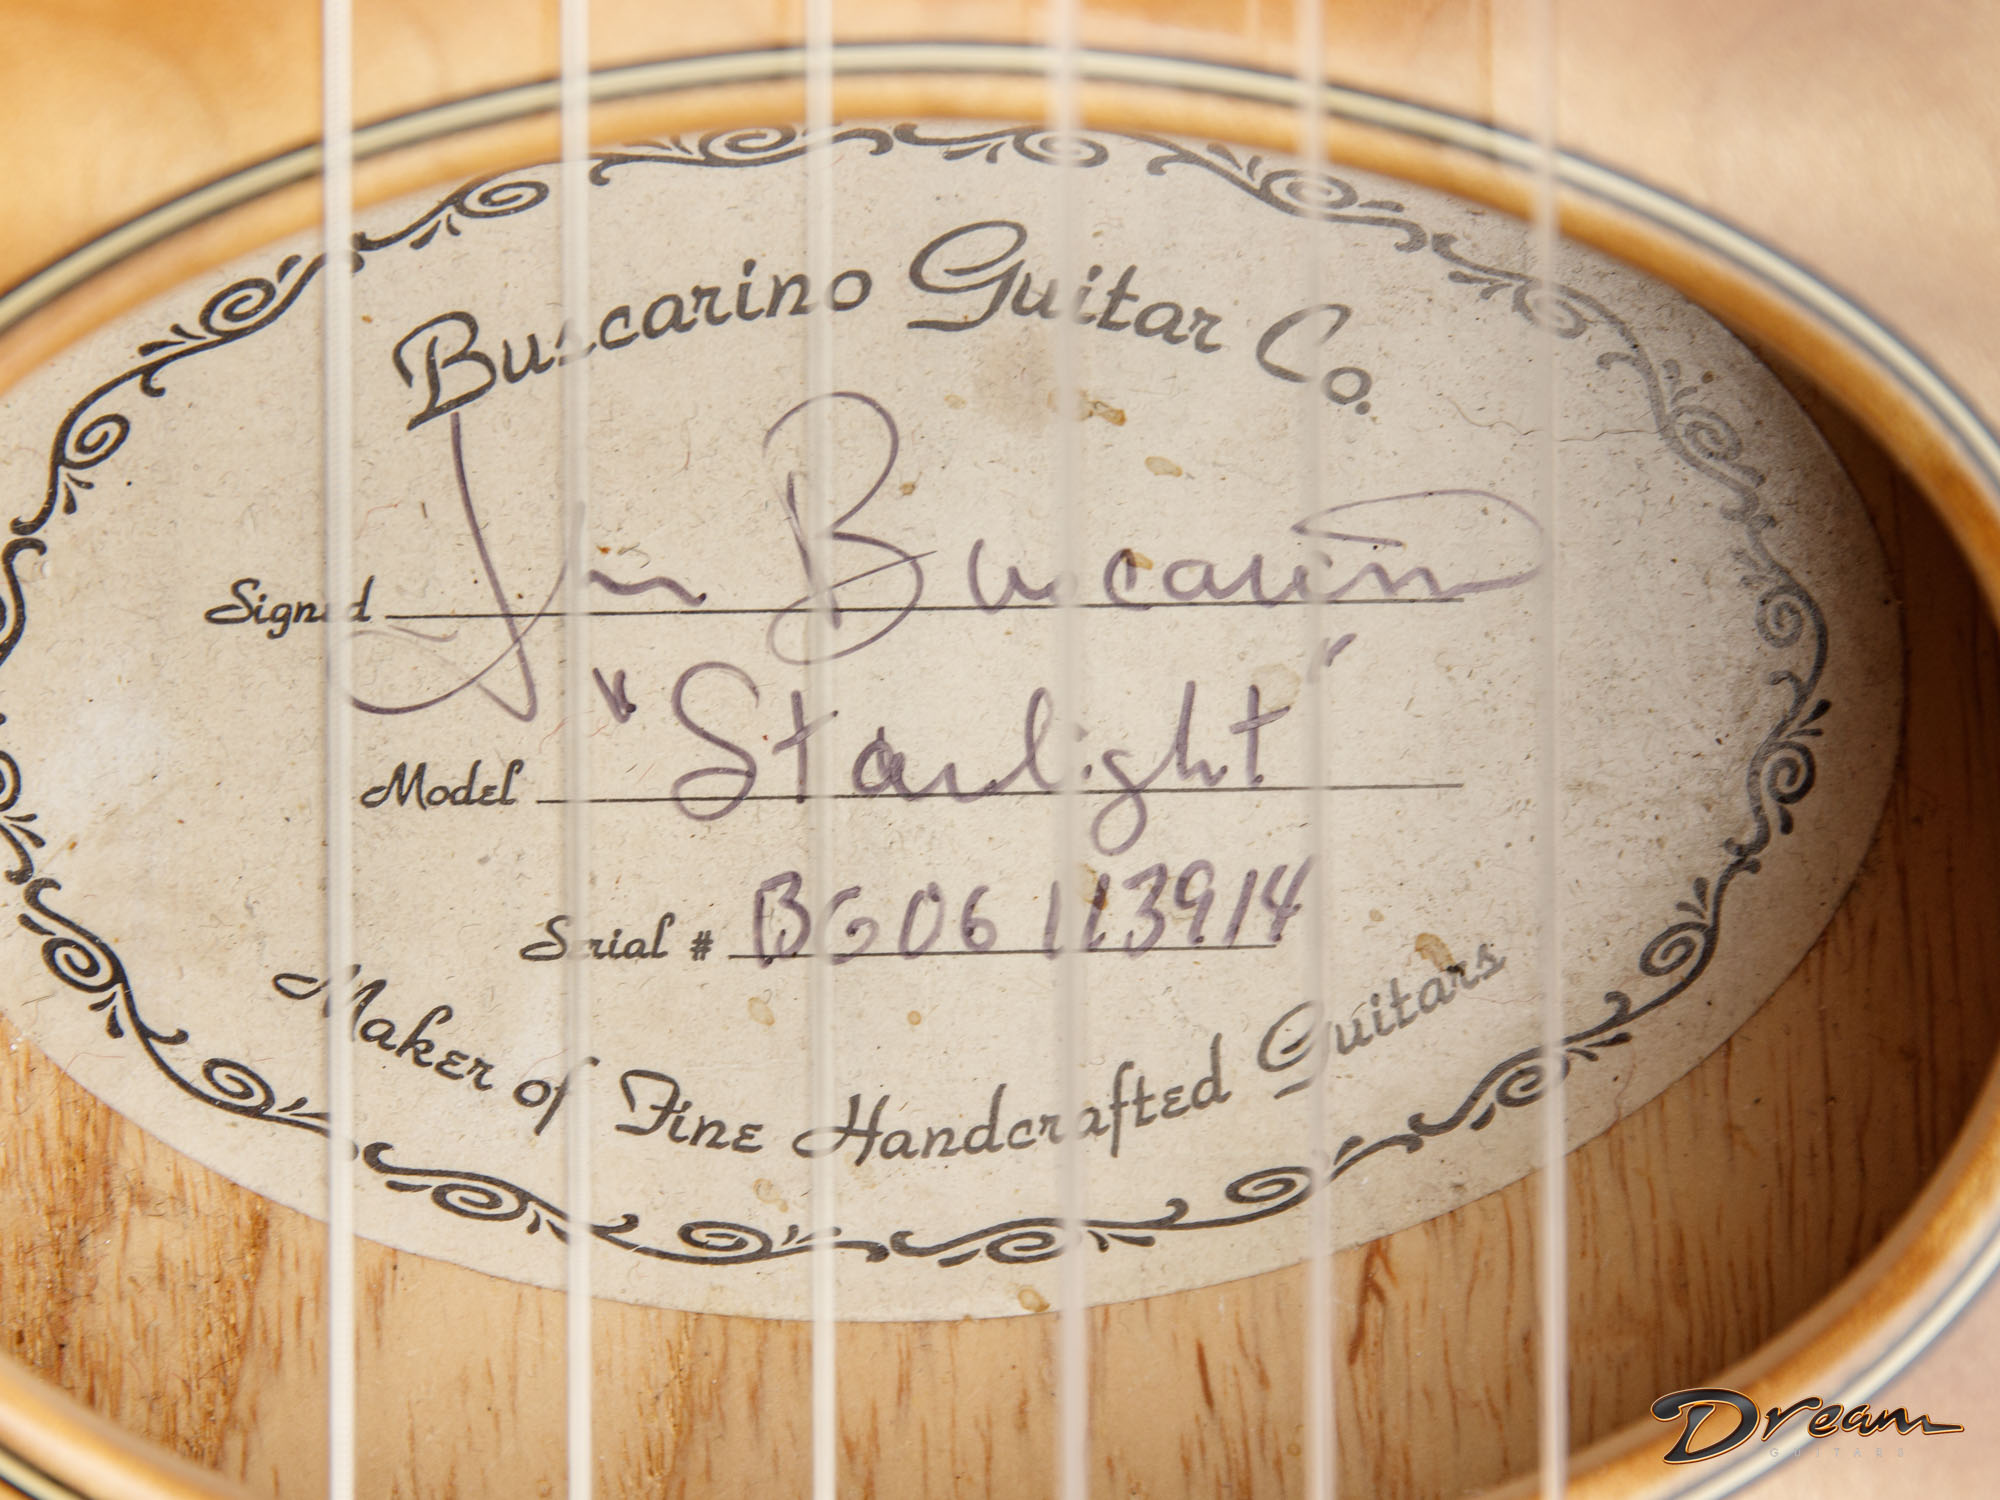 Buscarino Guitar Co.
Signed John Buscarino
Model "Starlight"
Serial # BG06113914
Maker of Fine Handcrafted Guitars
Dream
GUITARS